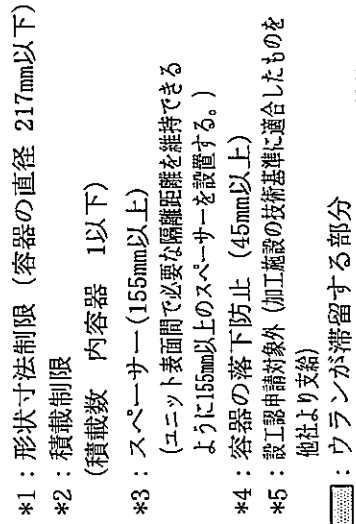 *1：形状寸法制限（容器の直径 217mm以下）
*2：積載制限
（積載数 内容器 1以下）
*3：スペーサー（155mm以上）
（ユニット表面間で必要な隔離距離を維持できる
ように155mm以上のスペーサーを設置する。）
*4：容器の落下防止（45mm以上）
*5：設工認申請対象外（加工施設の技術基準に適合したものを
他社より支給）
：ウランが滞留する部分